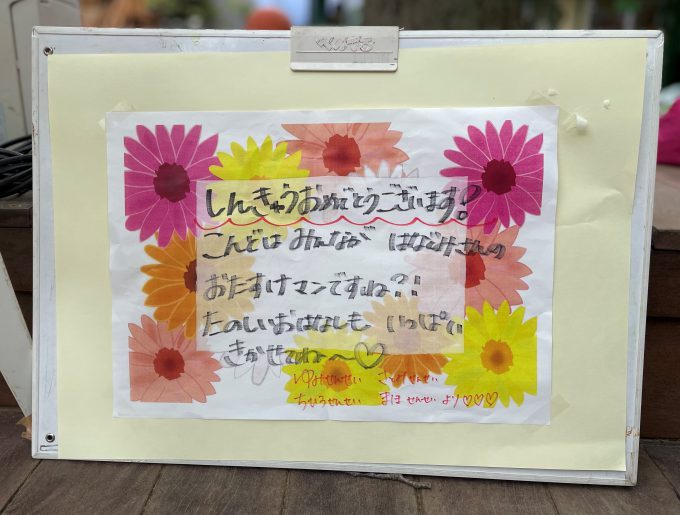 しんきゅうおめでとうございます!
こんどは みんなが はなみずきさんの
おたすけマンですね?!
たのしいおはなしも いっぱい
きかせてね〜♡
ゆみせんせい
ちひろせんせい まほ せんせい より♡♡♡